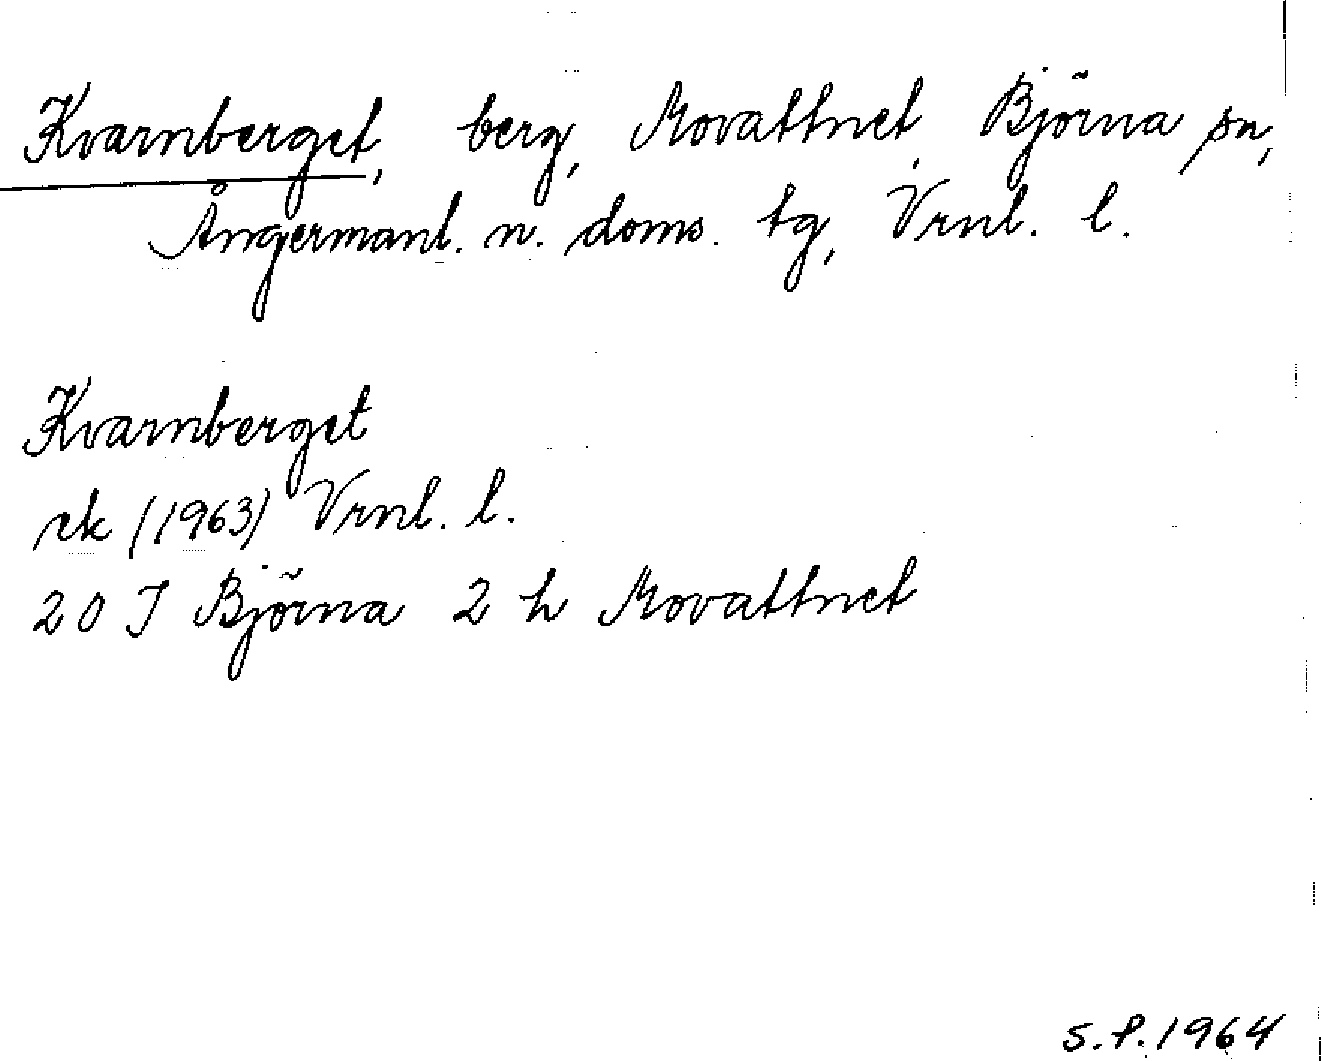 Kvarnberget, berg, Movattnet, Björna sn,
Ångermanl. n. doms. tg, Vrnl. l.
Kvarnberget
ek (1963) Vrnl. l.
20 J Björna 2 h Movattnet
S.P.1964